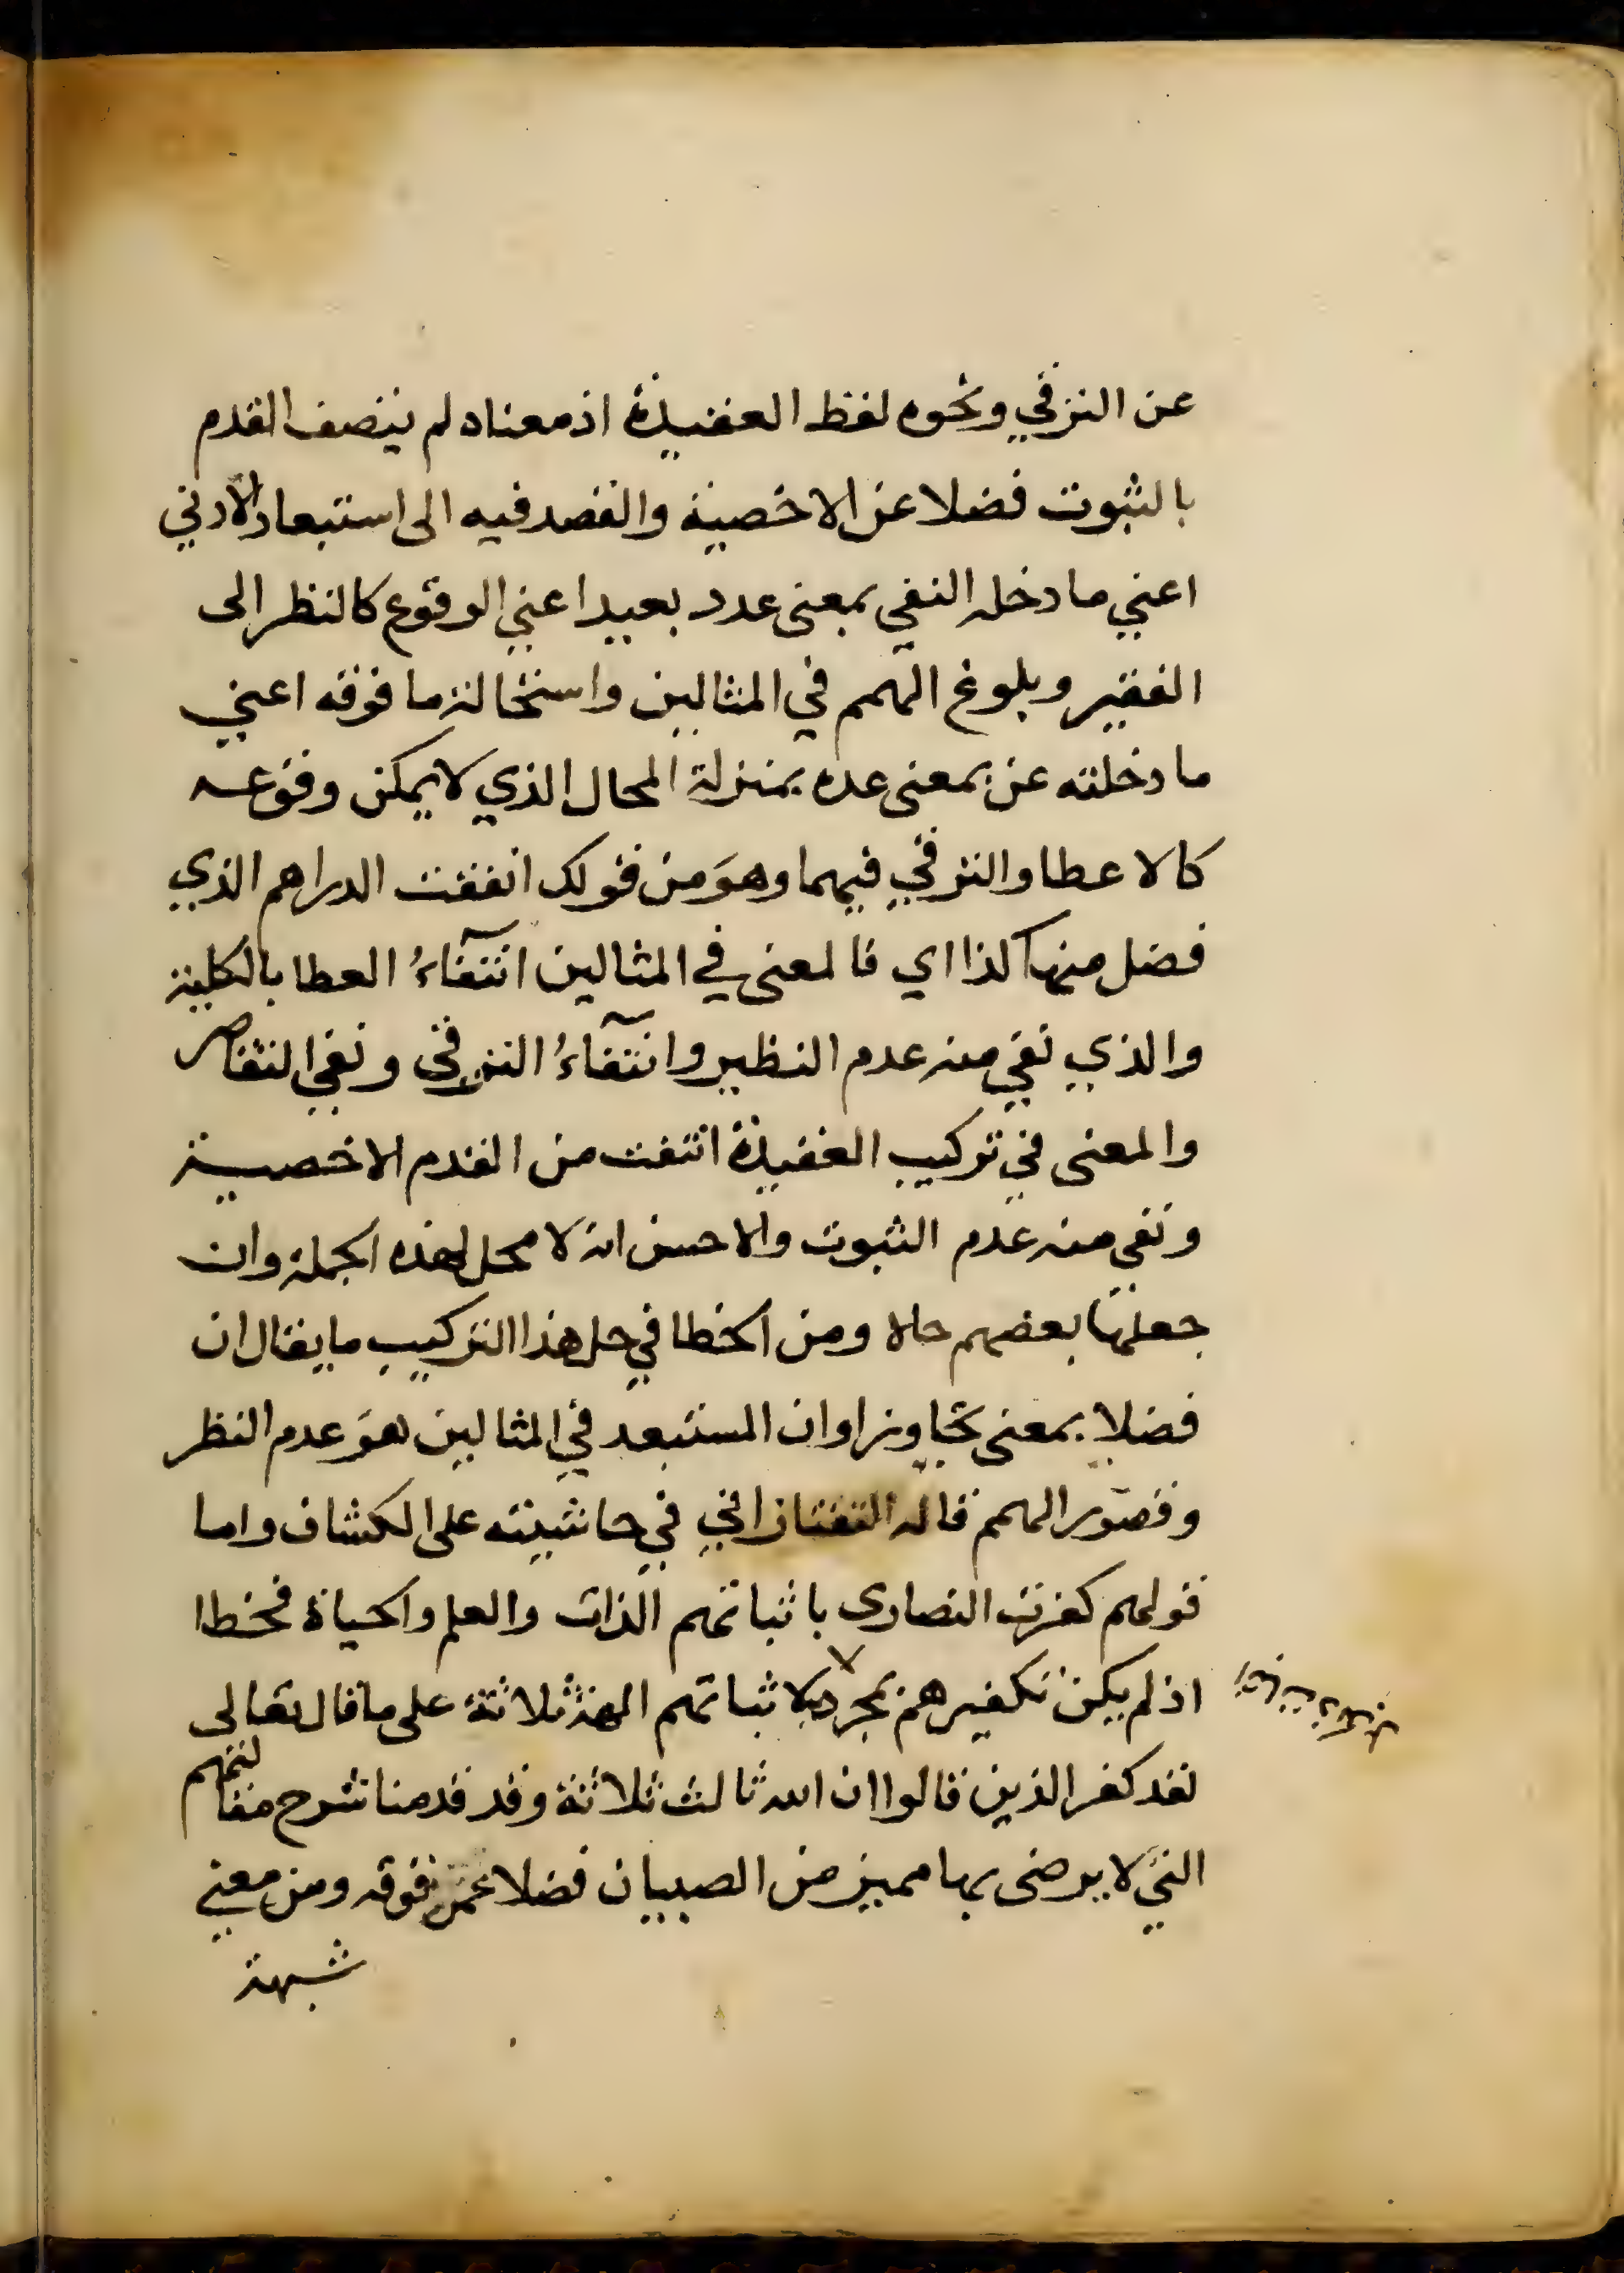 عن الترقي ونحوه لفظ العقيدة اذ معناه لم يتصف القدم
بالثبوت فضلا عن الاخصية والقصد فيه الى استبعاد الادني
اعني ما دخله النفي بمعنى عدد بعيدا عني الوقوع كالنظر الى
الفقير وبلوغ الهمم في المثالين واستحالة ما فوقه اعني
ما دخلته عن بمعنى عده بمنزلة المحال الذي لا يمكن وقوعه
كالاعطا والترقي فيهما وهو من قولك انفقت الدراهم الذي
فضل منها كذا اي فالمعنى في المثالين انتفآءُ العطا بالكلية
والذي نفي منه عدم النظير وانتفآءُ الترقي ونفي التقاصر
والمعنى في تركيب العقيدة انتفت من القدم الاخصية
ونفي منه عدم الثبوت والاحسن انه لا محل لهذه الجملة وان
جعلها بعضهم حالا ومن الخطا في حل هذا التركيب ما يقال ان
فضلا بمعنى تجاوز او ان المستبعد في المثالين هو عدم النظر
وقصور الهمم قاله التفتازاني في حاشيته على الكشاف واما
قولهم كفرت النصارى باثباتهم الذات والعلم والحياة فخطا
اذ لم يكن تكفيرهم بمجرد لاثباتهم الهة ثلاثة على ما قال تعالى
لقد كفر الذين قالوا ان الله ثالث ثلاثة وقد قدمنا شرح مقالتهم
التي لا يرضى بها مميز من الصبيان فضلا عمن فوقه ومن معني
شبهة